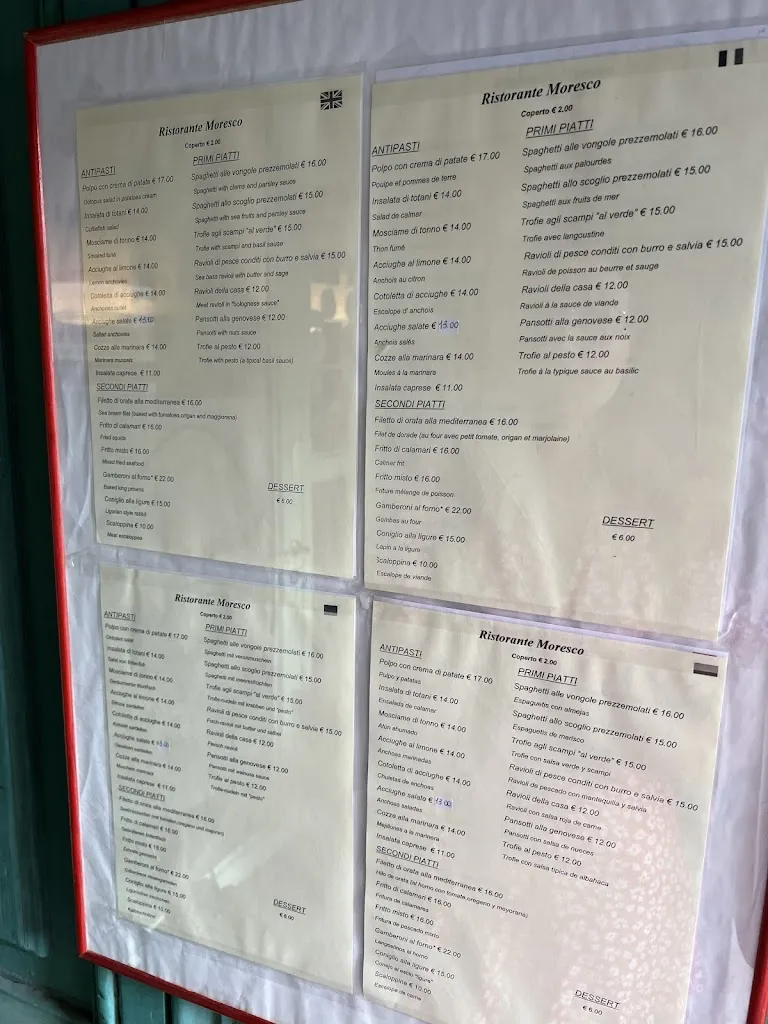 Ristorante Moresco
Coperto € 2.00
ANTIPASTI
Polpo con crema di patate € 17.00
Octopus salad in potatoes cream
Insalata di totani € 14.00
Cuttlefish salad
Mosciame di tonno € 14.00
Smoked tuna
Acciughe al limone € 14.00
Lemon anchovies
Cotoletta di acciughe € 14.00
Anchovies cutlet
Acciughe salate € 13.00
Salted anchovies
Cozze alla marinara € 14.00
Marinara mussels
Insalata caprese € 11.00
SECONDI PIATTI
Filetto di orata alla mediterranea € 16.00
Sea bream filet (baked with tomatoes, origan and maggiorana)
Fritto di calamari € 16.00
Fried squids
Fritto misto € 16.00
Mixed fried seafood
Gamberoni al forno* € 22.00
Baked king prawns
Coniglio alla ligure € 15.00
Ligurian style rabbit
Scaloppina € 10.00
Meat escaloppes
PRIMI PIATTI
Spaghetti alle vongole prezzemolati € 16.00
Spaghetti with clams and parsley sauce
Spaghetti allo scoglio prezzemolati € 15.00
Spaghetti with sea fruits and parsley sauce
Trofie agli scampi "al verde" € 15.00
Trofie with scampi and basil sauce
Ravioli di pesce conditi con burro e salvia € 15.00
Sea bass ravioli with butter and sage
Ravioli della casa € 12.00
Meat ravioli in "bolognese sauce"
Pansotti alla genovese € 12.00
Pansotti with nuts sauce
Trofie al pesto € 12.00
Trofie with pesto (a tipical basil sauce)
DESSERT
€ 6.00
Ristorante Moresco
Coperto € 2.00
ANTIPASTI
Polpo con crema di patate € 17.00
Poulpe et pommes de terre
Insalata di totani € 14.00
Salad de calmer
Mosciame di tonno € 14.00
Thon fumé
Acciughe al limone € 14.00
Anchois au citron
Cotoletta di acciughe € 14.00
Escalope d' anchois
Acciughe salate € 13.00
Anchois salés
Cozze alla marinara € 14.00
Moules à la marinara
Insalata caprese € 11.00
SECONDI PIATTI
Filetto di orata alla mediterranea € 16.00
Filet de dorade (au four avec petit tomate, origan et marjolaine)
Fritto di calamari € 16.00
Calmer frit
Fritto misto € 16.00
Friture mélange de poisson
Gamberoni al forno* € 22.00
Gambas au four
Coniglio alla ligure € 15.00
Lapin a la ligure
Scaloppina € 10.00
Escalope de viande
PRIMI PIATTI
Spaghetti alle vongole prezzemolati € 16.00
Spaghetti aux palourdes
Spaghetti allo scoglio prezzemolati € 15.00
Spaghetti aux fruits de mer
Trofie agli scampi "al verde" € 15.00
Trofie avec langoustine
Ravioli di pesce conditi con burro e salvia € 15.00
Ravioli de poisson au beurre et sauge
Ravioli della casa € 12.00
Ravioli à la sauce de viande
Pansotti alla genovese € 12.00
Pansotti avec la sauce aux noix
Trofie al pesto € 12.00
Trofie à la typique sauce au basilic
DESSERT
€ 6.00
Ristorante Moresco
Coperto € 2.00
ANTIPASTI
Polpo con crema di patate € 17.00
Insalata di totani € 14.00
Mosciame di tonno € 14.00
Acciughe al limone € 14.00
Cotoletta di acciughe € 14.00
Acciughe salate € 13.00
Cozze alla marinara € 14.00
Insalata caprese € 11.00
SECONDI PIATTI
Filetto di orata alla mediterranea € 16.00
Fritto di calamari € 16.00
Fritto misto € 16.00
Gamberoni al forno* € 22.00
Coniglio alla ligure € 15.00
Scaloppina € 10.00
PRIMI PIATTI
Spaghetti alle vongole prezzemolati € 16.00
Spaghetti mit venusmuscheln
Spaghetti allo scoglio prezzemolati € 15.00
Spaghetti mit meeresfrüchten
Trofie agli scampi "al verde" € 15.00
Trofie-nudeln mit krabben und "pesto"
Ravioli di pesce conditi con burro e salvia € 15.00
Fisch-ravioli mit butter und salbei
Ravioli della casa € 12.00
Fleisch ravioli
Pansotti alla genovese € 12.00
Pansotti mit walnuss sauce
Trofie al pesto € 12.00
Trofie-nudeln mit "pesto"
DESSERT
€ 6.00
Ristorante Moresco
Coperto € 2.00
ANTIPASTI
Polpo con crema di patate € 17.00
Pulpo y patatas
Insalata di totani € 14.00
Ensalada de calamar
Mosciame di tonno € 14.00
Atún ahumado
Acciughe al limone € 14.00
Anchoas marinadas
Cotoletta di acciughe € 14.00
Chuletas de anchoas
Acciughe salate € 13.00
Anchoas saladas
Cozze alla marinara € 14.00
Mejillones a la marinera
Insalata caprese € 11.00
SECONDI PIATTI
Filetto di orata alla mediterranea € 16.00
Filéo de orata (al horno con tomate,oregeno y mayorana)
Fritto di calamari € 16.00
Fritura de calamares
Fritto misto € 16.00
Fritura de pescado mixto
Gamberoni al forno* € 22.00
Langostinos al horno
Coniglio alla ligure € 15.00
Conejo al estilo "ligure"
Scaloppina € 10.00
Escalope de carne
PRIMI PIATTI
Spaghetti alle vongole prezzemolati € 16.00
Espaguetis con almejas
Spaghetti allo scoglio prezzemolati € 15.00
Espaguetis de marisco
Trofie agli scampi "al verde" € 15.00
Trofie con salsa verde y scampi
Ravioli di pesce conditi con burro e salvia € 15.00
Ravioli de pescado con mantequilla y salvia
Ravioli della casa € 12.00
Ravioli con salsa roja de carne
Pansotti alla genovese € 12.00
Pansotti con salsa de nueces
Trofie al pesto € 12.00
Trofie con salsa tipica de albahaca
DESSERT
€ 6.00